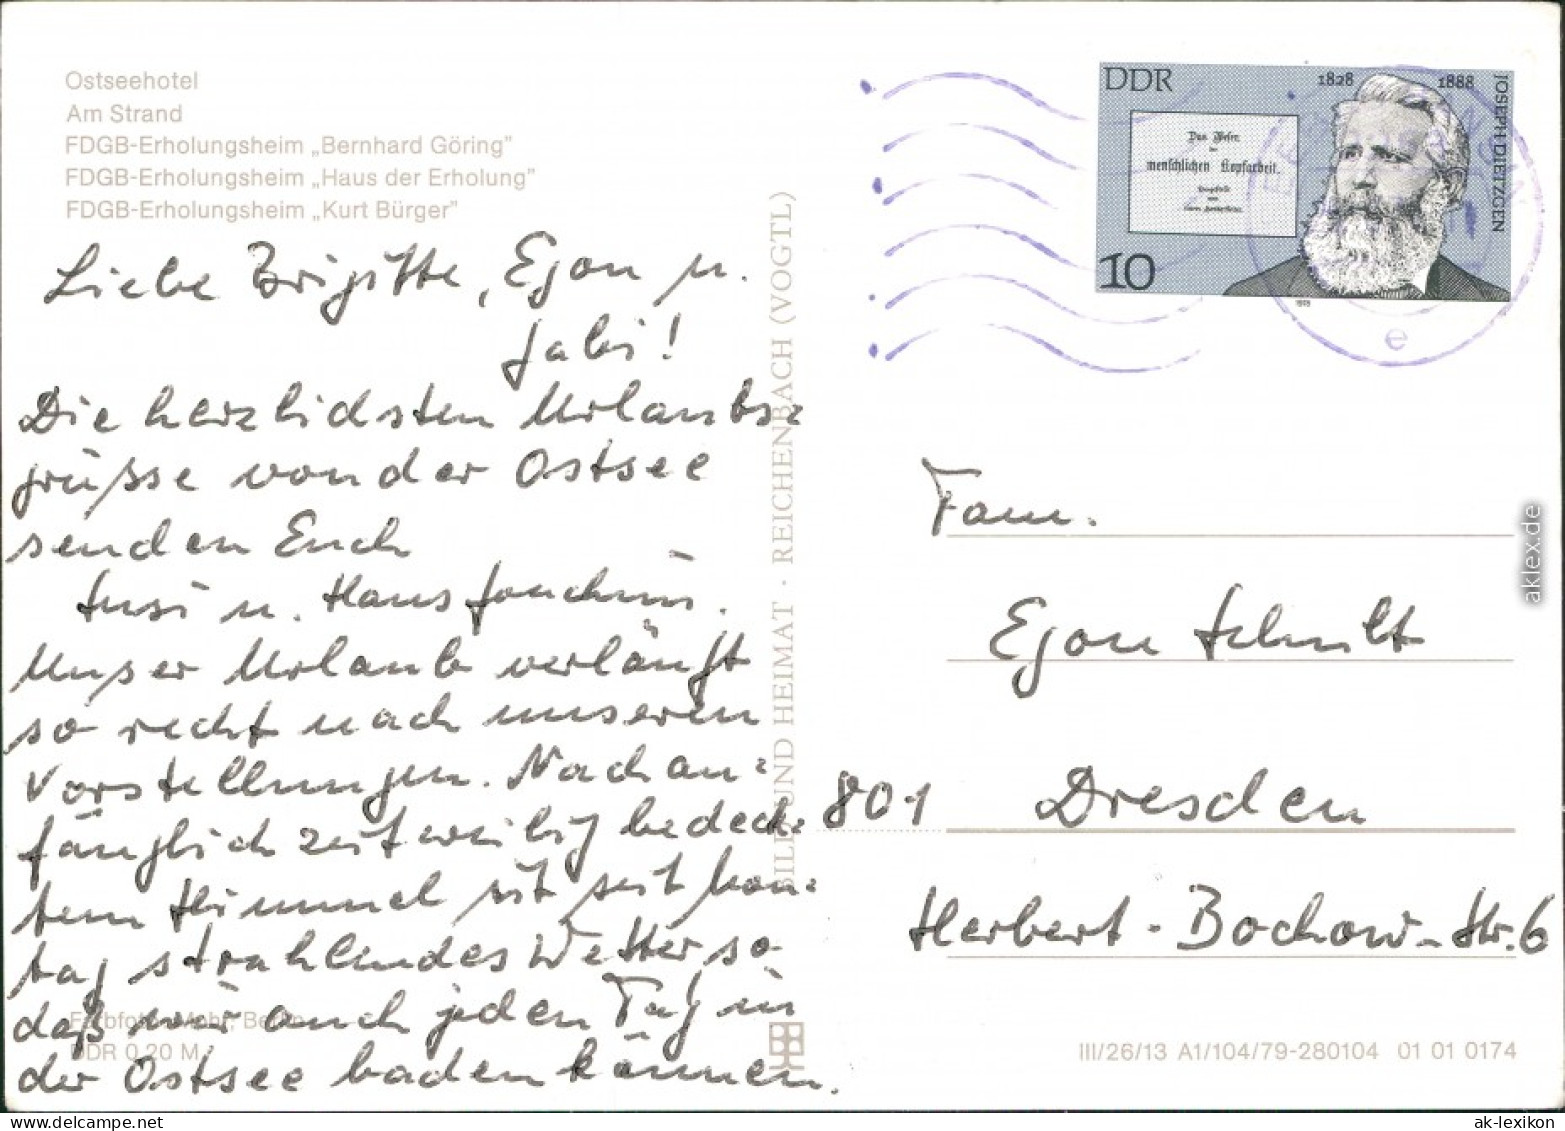 Ostseehotel
Am Strand
FDGB-Erholungsheim „Bernhard Göring”
FDGB-Erholungsheim „Haus der Erholung”
FDGB-Erholungsheim „Kurt Bürger”
Liebe Brigitte, Egon u.
Gabi!
Die herzlichsten Urlaubs-
grüsse von der Ostsee
senden Euch
Susi u. Hans Joachim.
Unser Urlaub verläuft
so recht nach unseren
Vorstellungen. Nach an-
fänglich zeitweilig bedeck-
tem Himmel ist seit Mon-
tag strahlendes Wetter so
daß wir auch jeden Tag in
der Ostsee baden können.
Farbfoto: Mohr, Berlin
DDR 0,20 M
BILD UND HEIMAT · REICHENBACH (VOGTL)
DDR
1828 1888
JOSEPH DIETZGEN
Das Wesen
der
menschlichen Kopfarbeit.
10
e
Fam.
Egon Schultz
801 Dresden
Herbert-Bochow-Str. 6
III/26/13 A1/104/79-280104 01 01 0174
aklex.de
ak-lexikon